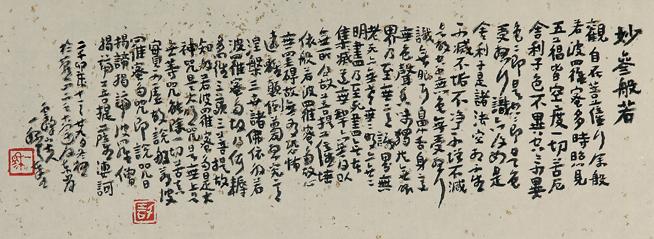 妙參般若
觀自在菩薩行深般
若波羅蜜多時照見
五蘊皆空度一切苦厄
舍利子色不異空空不異
色色即是空空即是色
受想行識亦復如是
舍利子是諸法空相不生
不滅不垢不淨不增不減
是故空中無色無受想行
識無眼耳鼻舌身意
無色聲香味觸法無眼
界乃至無意識界無
明盡乃至無老死亦無
老死盡無苦
集滅道無智亦無得以
無所得故菩提薩埵
依般若波羅蜜多故心
無罣礙故無有恐怖
遠離顛倒夢想究竟
涅槃三世諸佛依般若
波羅蜜多故得阿耨
多羅三藐三菩提故
知般若波羅蜜多是大
神咒是大明咒是無上咒
無等等咒能除一切苦真
實不虛故說般若波
羅蜜多咒即說咒曰
揭諦揭諦波羅僧
揭諦菩提薩婆訶